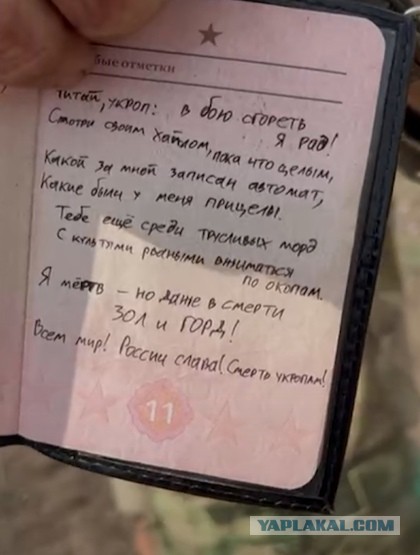 бые отметки
Читай, укроп: в бою сгореть
Я рад!
Смотри своим хайлом, пока что целым,
Какой за мной записан автомат,
Какие были у меня прицелы.
Тебе ещё среди трусливых морд
С культями рваными вжиматься
по окопам.
Я мёртв – но даже в смерти
ЗОЛ и ГОРД!
Всем мир! России слава! Смерть укропам!
11
YAPLAKAL.COM